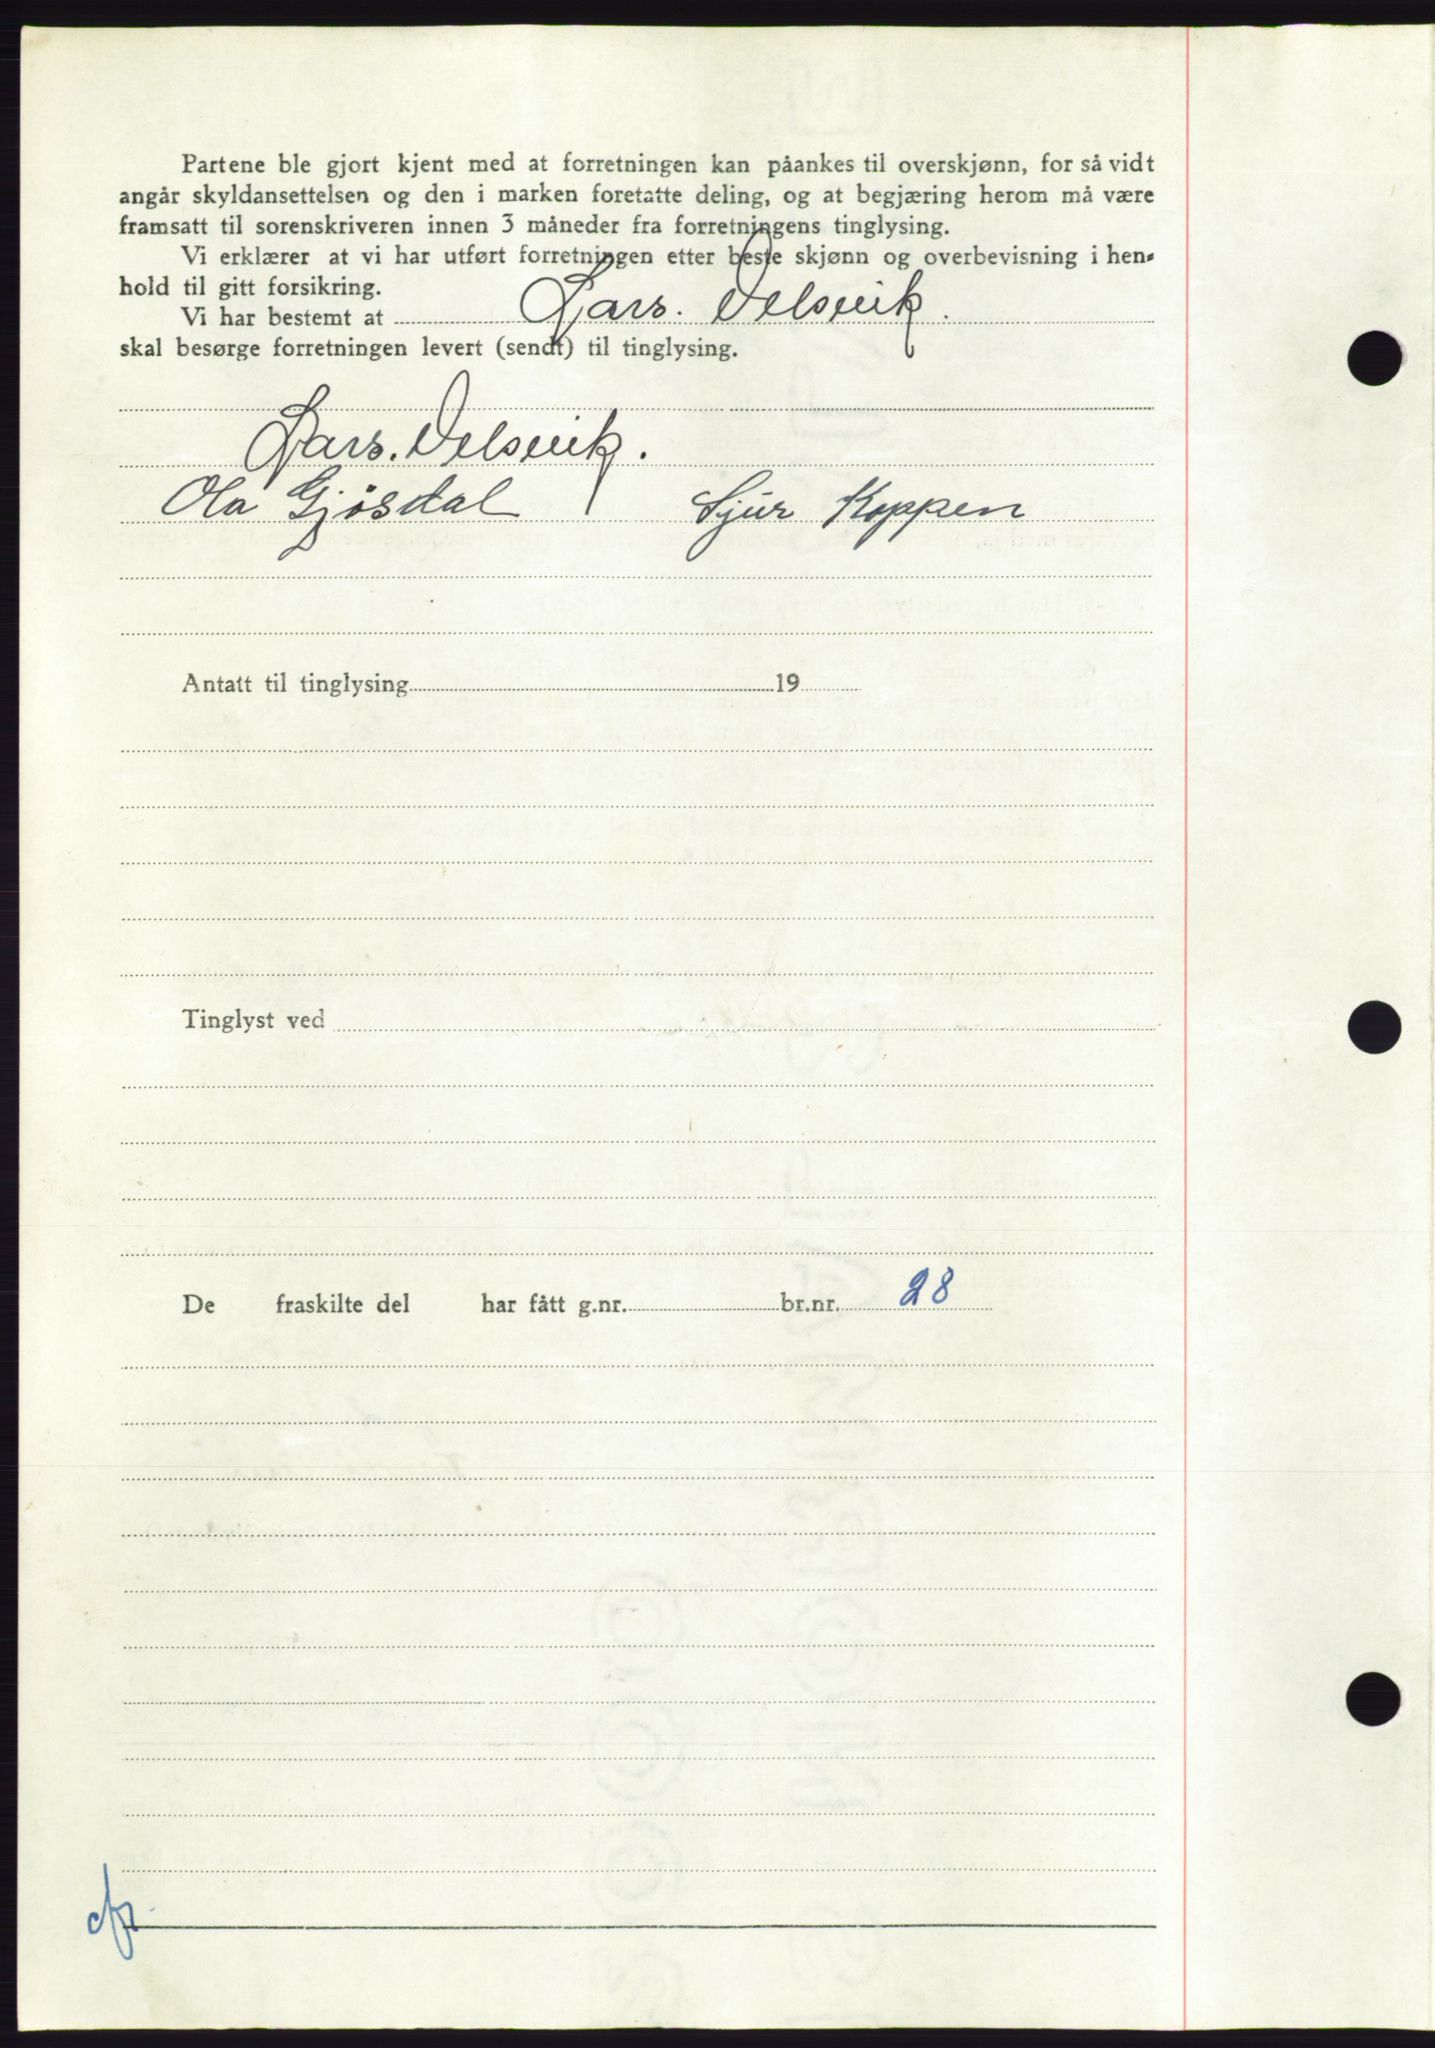 Partene ble gjort kjent med at forretningen kan påankes til overskjønn, for så vidt
angår skyldansettelsen og den i marken foretatte deling, og at begjæring herom må være
framsatt til sorenskriveren innen 3 måneder fra forretningens tinglysing.
Vi erklærer at vi har utført forretningen etter beste skjønn og overbevisning i hen-
hold til gitt forsikring.
Vi har bestemt at Lars. Velsvik.
skal besørge forretningen levert (sendt) til tinglysing.
Lars. Velsvik.
Ola Gjøsdal Sjur Koppen
Antatt til tinglysing 19
Tinglyst ved
De fraskilte del har fått g.nr. br.nr. 28